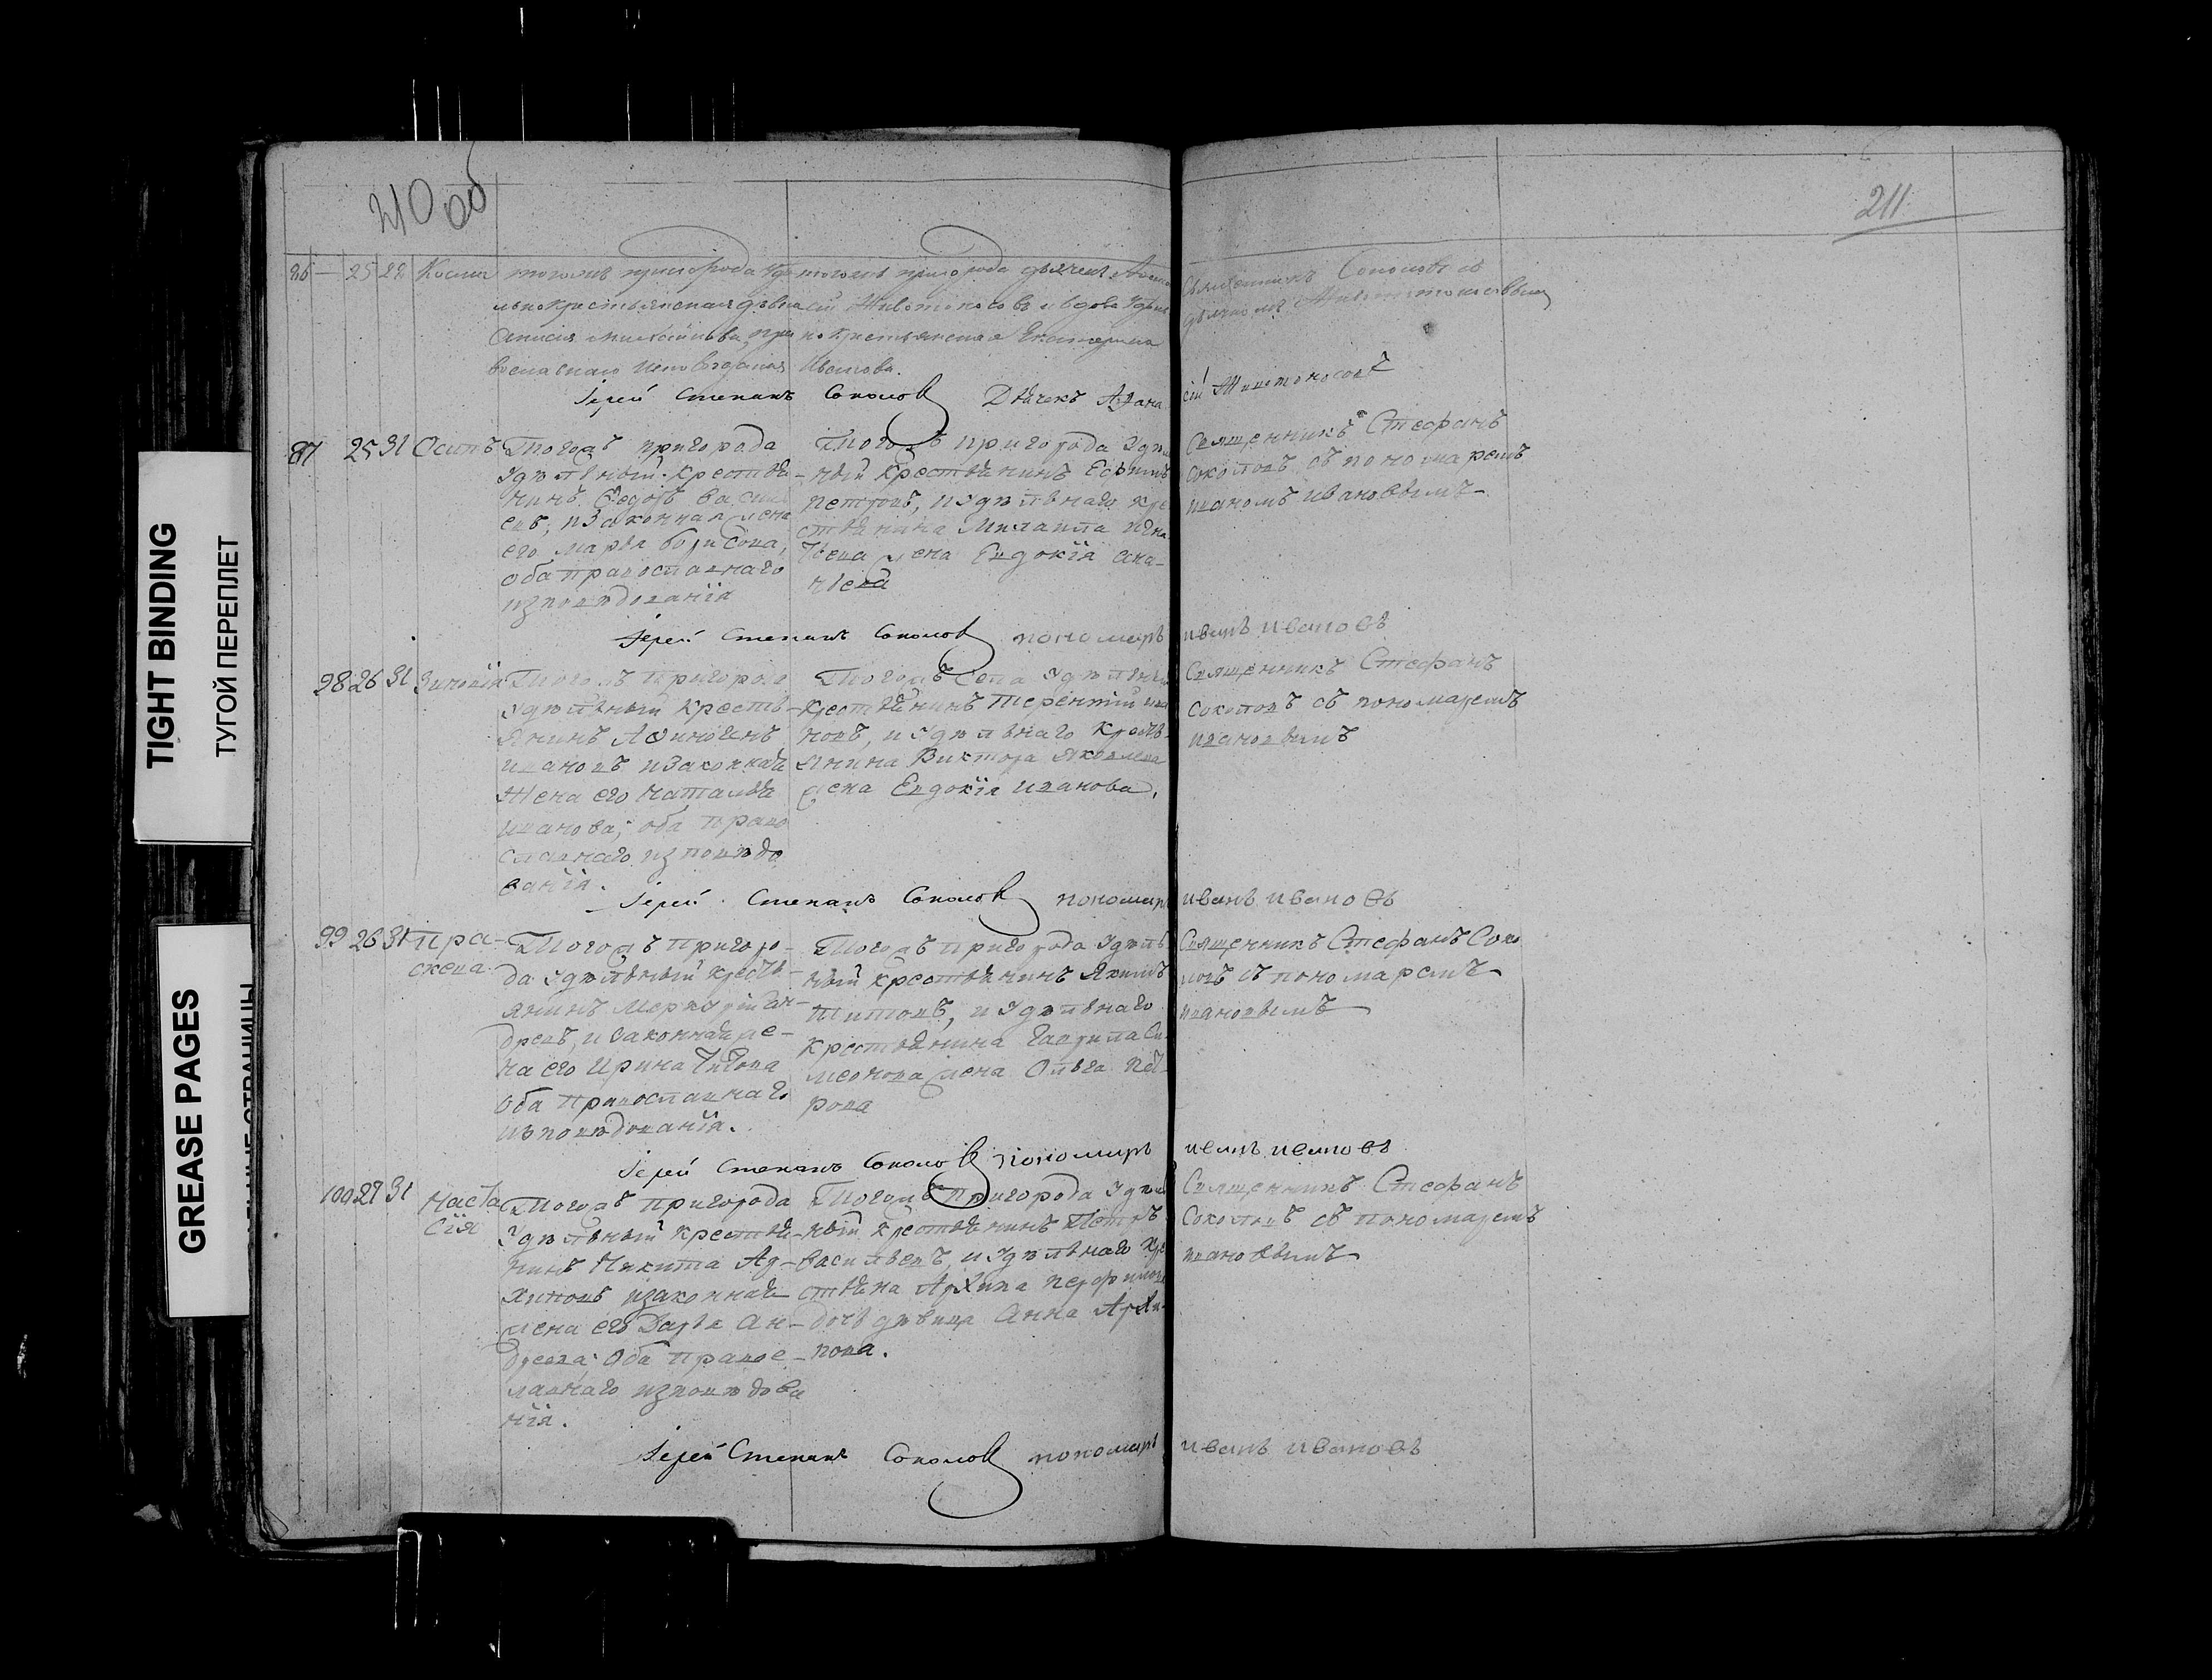 TIGHT BINDING
ТУГОЙ ПЕРЕПЛЕТ
GREASE PAGES
210 об
211
86 25 28 Косма
тогожъ пригорода
льнокрестьянская девка
Анисія
тогожъ пригорода дьячекъ
Животоносовъ и вдова
нокрестьянская Екатерина
Иванова.
Священникъ Соколовъ съ
Іерей Степанъ Соколов Дьячекъ Афана
сій Животоносов
87 25 31 Осипъ
Тогожъ пригорода
Удѣльный крестья-
нинъ Федотъ Васил
евъ, и законная жена
его Марѳа Борисова,
оба православнаго
изповѣдованія
Тогожъ пригорода Удѣл
ный крестьянинъ Ефимъ
Петровъ, и Удѣльнаго кре
стьянина Михаила Игна
тьева жена Евдокія Ана-
ньева
Священникъ Стефанъ
Соколовъ съ пономаремъ
Иваномъ Ивановымъ
Іерей Степанъ Соколов пономарь иванъ ивановъ
98 26 31 Зиновія
Тогожъ пригорода
Удѣльный кресть-
янинъ Афиногенъ
Ивановъ и законная
жена его Наталья
Иванова; оба право
славнаго изповѣдо
ванія.
Тогожъ села Удѣльны
крестьянинъ Терентій Ива
новъ, и Удѣльнаго кресть-
янина Виктора Яковлева
жена Евдокія Иванова.
Священникъ Стефанъ
Соколовъ съ пономаремъ
Ивановымъ
Іерей Степанъ Соколов пономарь иванъ ивановъ
99 26 31 Пра-
скева
Тогожъ пригоро-
да Удѣльный кресть-
янинъ Меркурій Ан-
древъ, и законная же-
на его Ирина Титова
Оба православнаго
изповѣдованія.
Тогожъ пригорода Удѣль
ный крестьянинъ Якимъ
Титовъ, и Удѣльнаго
крестьянина Гаврила Си-
меонова жена Ольга Пет-
рова
Священникъ Стефанъ Соко
ловъ съ пономаремъ
Ивановымъ
Іерей Степанъ Соколов пономарь иванъ ивановъ
100 29 31 Наста
сія
Тогожъ пригорода
Удѣльный крестья-
нинъ Никита Ар-
хиповъ и законная
жена его Дарья Ан-
дреева: Оба правос-
лавнаго изповѣдова
нія.
Тогожъ пригорода Удѣль
ный крестьянинъ Петръ
Васильевъ, и Удѣльнаго кре
стьяна Архипа Перфилова
дочь дѣвица Анна Архи-
пова.
Священникъ Стефанъ
Соколовъ съ пономаремъ
Ивановымъ
Іерей Степанъ Соколов пономарь иванъ ивановъ